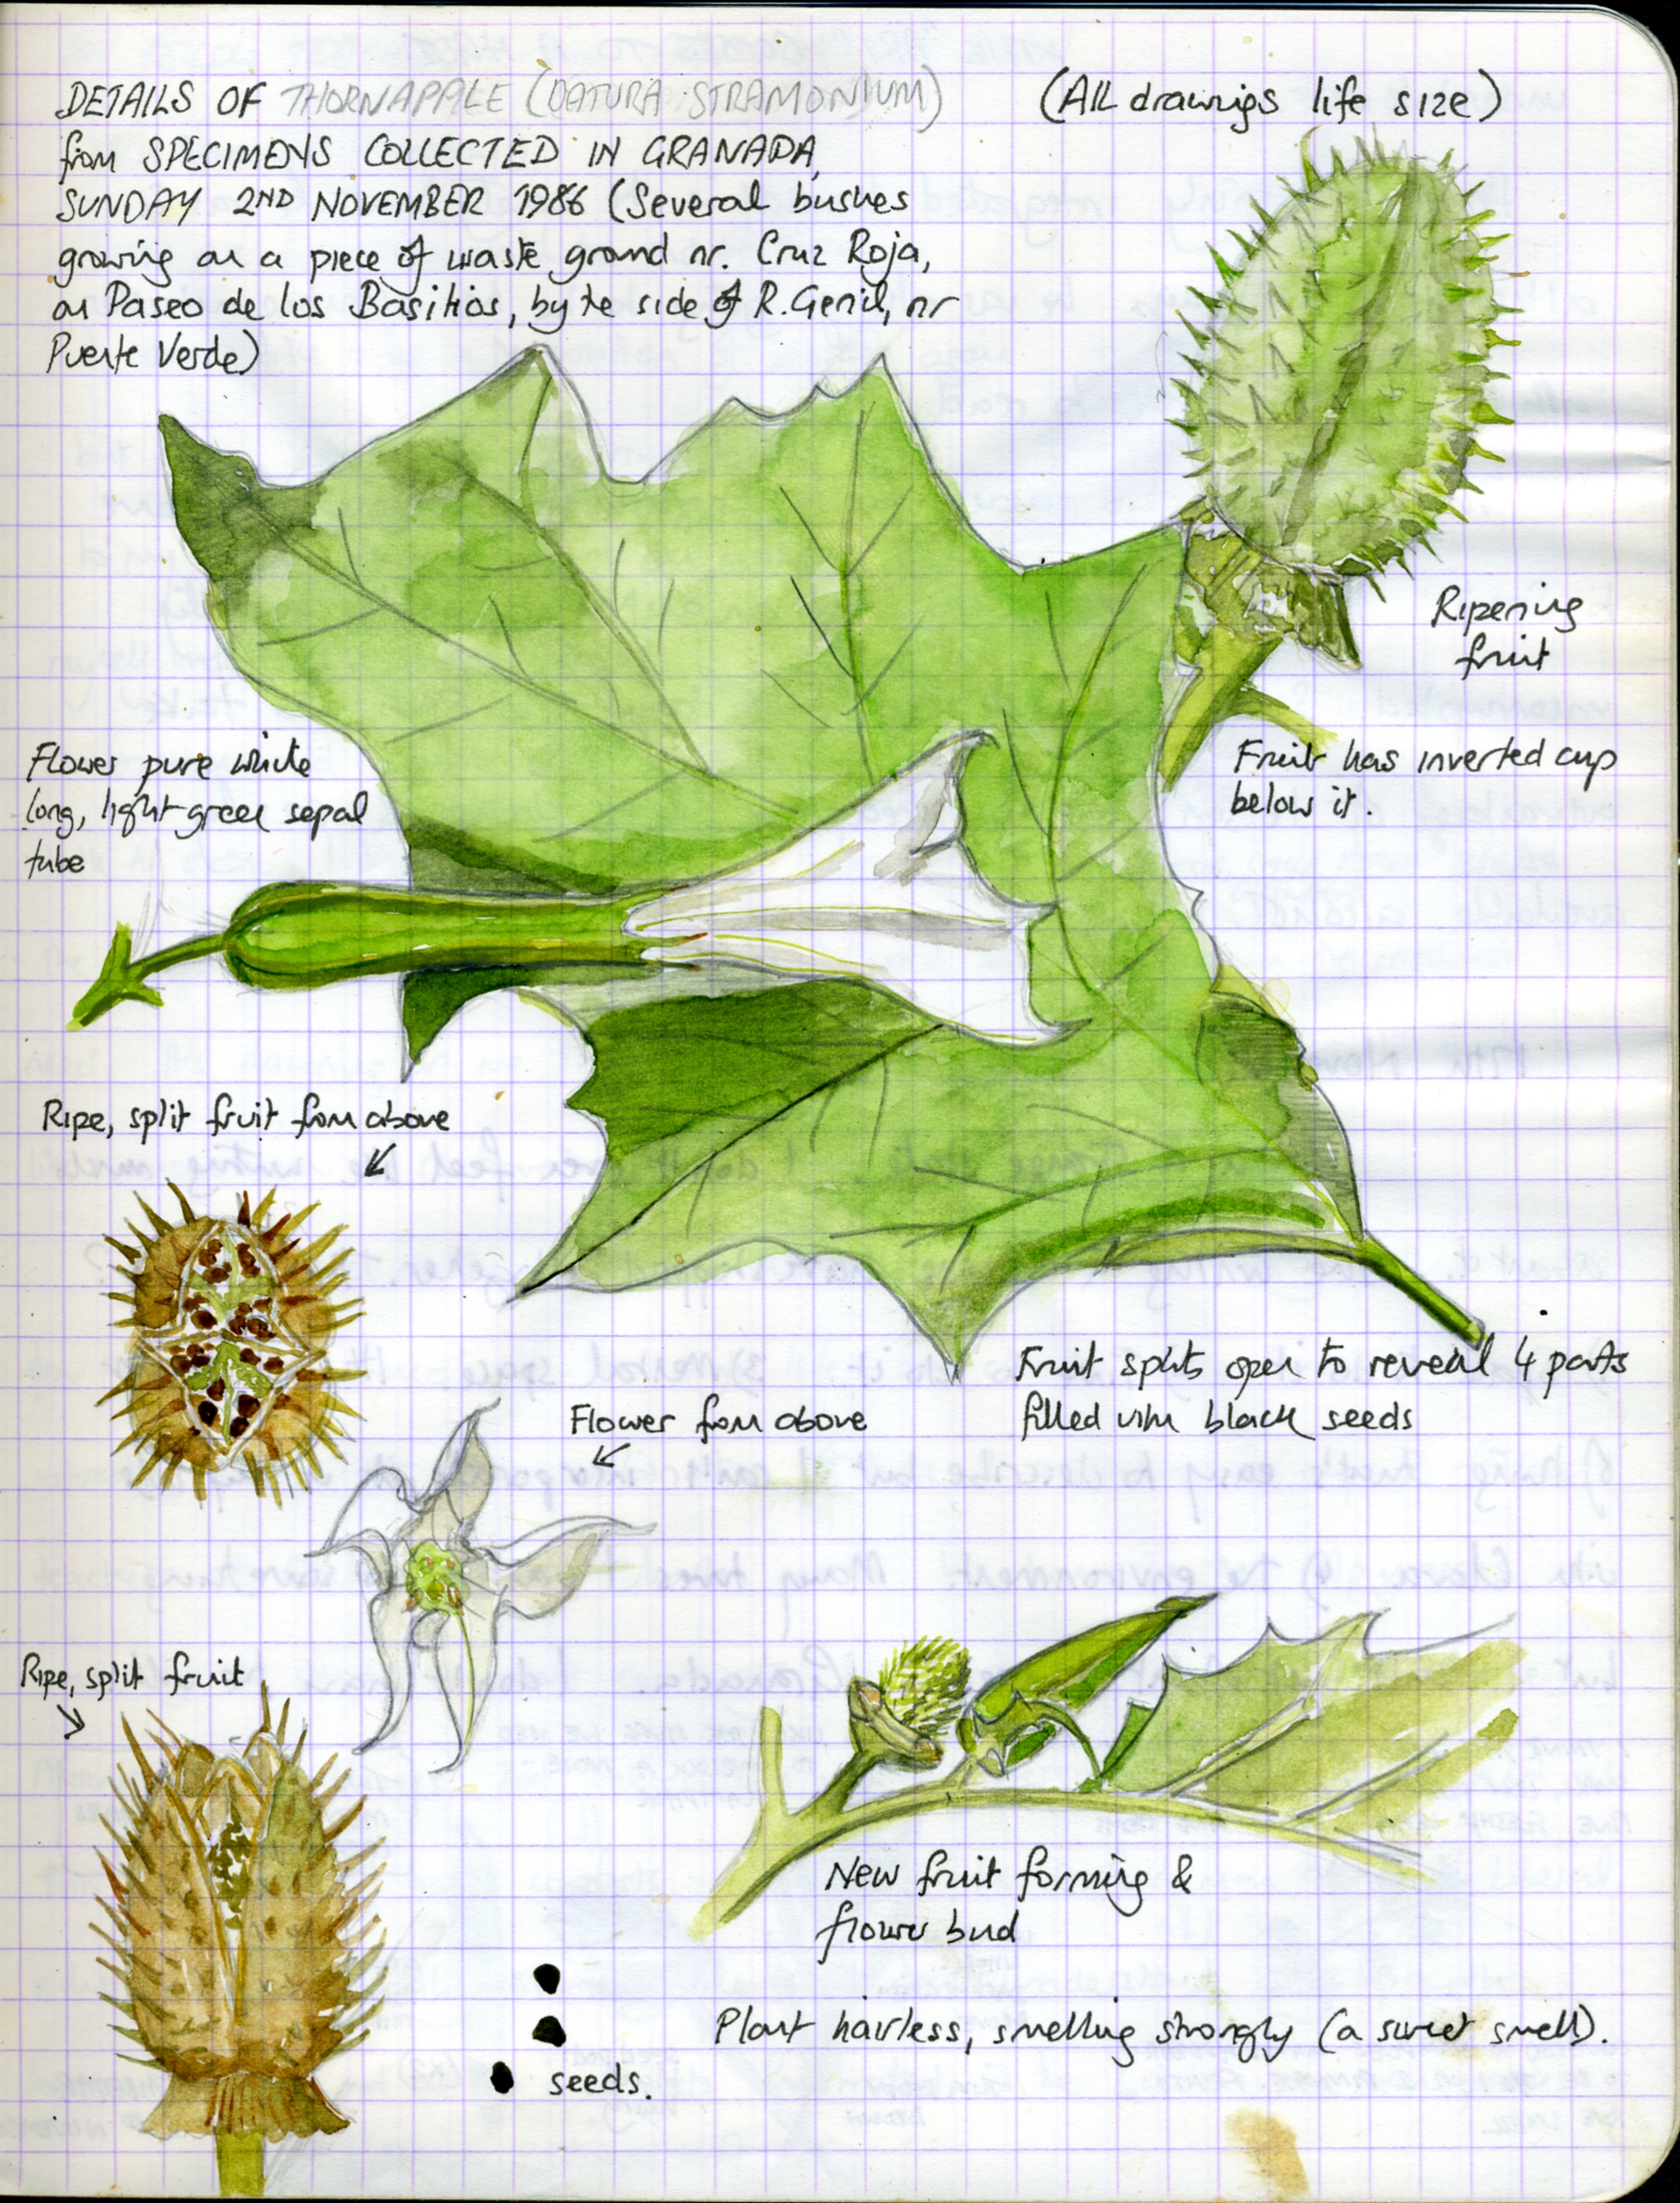 DETAILS OF THORNAPPLE (DATURA STRAMONIUM)
(All drawings life size)
from SPECIMENS COLLECTED IN GRANADA,
SUNDAY 2ND NOVEMBER 1986 (Several bushes
growing on a piece of waste ground nr. Cruz Roja,
on Paseo de los Basilios, by the side of R. Genil, nr
Puente Verde)
Ripening
fruit
Flower pure white
long, light green sepal
tube
Fruit has inverted cup
below it.
Ripe, split fruit from above
Fruit splits open to reveal 4 parts
filled with black seeds
Flower from above
Ripe, split fruit
New fruit forming &
flower bud
Plant hairless, smelling strongly (a sweet smell).
seeds.